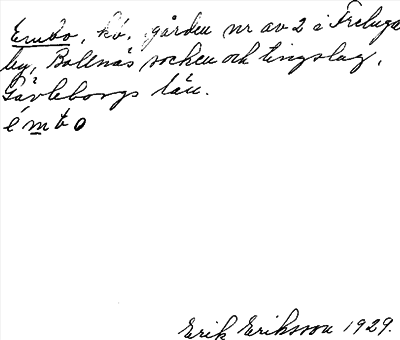 Emto, kö. gården nr av 2 i Freluga
by, Bollnäs socken och tingslag,
Gävleborgs län.
é m t o
Erik Eriksson 1929.